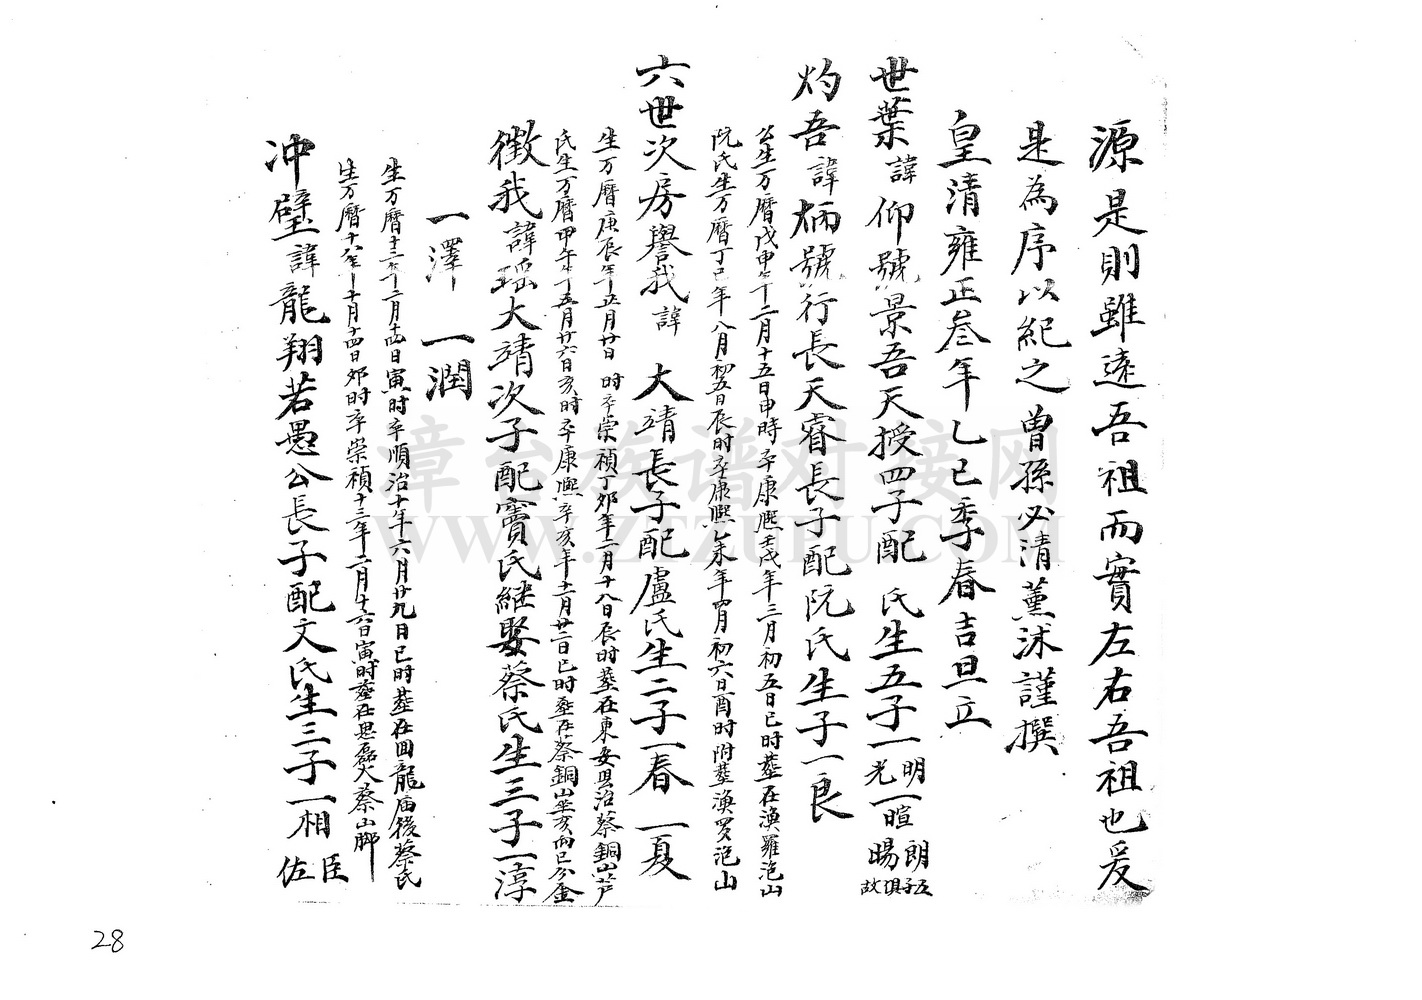 源是則雖遠吾祖而實左右吾祖也爰
是為序以紀之曾孫必清薰沭謹撰
皇清雍正叁年乙巳季春吉旦立
世葉諱仰號景吾天授四子配 氏生五子一明 光一暄 朗 暘 五子俱故
灼吾諱炳號 行長天睿長子配阮氏生子一良
公生万曆戊申年十二月十五日申時卒康熙壬戌年三月初五日巳時葬在漁羅沲山
阮氏生万曆丁巳年八月初五日辰時卒康熙 未年 月初六日酉時附葬漁罗沲山
六世次房譽我諱 大靖長子配盧氏生二子一春 一夏
生万曆庚辰年正月廿日 時卒崇禎丁卯年二月十八日辰時葬在東安县治蔡銅山芦
氏生万曆甲午年五月廿六日亥時卒康熙辛亥年十一月廿二日巳時葬在蔡銅山坐亥向巳分金
徵我諱瑶大靖次子配竇氏継娶蔡氏生三子一淳
一澤 一潤
生万曆十三年二月十四日寅時卒順治十年六月廿九日巳時葬在回龍庙後蔡氏
生万曆十八年十月十四日卯時卒崇禎十三年二月十六日寅時葬在思磊大蔡山脚
冲壁諱龍翔若愚公長子配文氏生三子一相 臣 佐
28
章台族谱对接网
WWW.ZTZUPU.COM